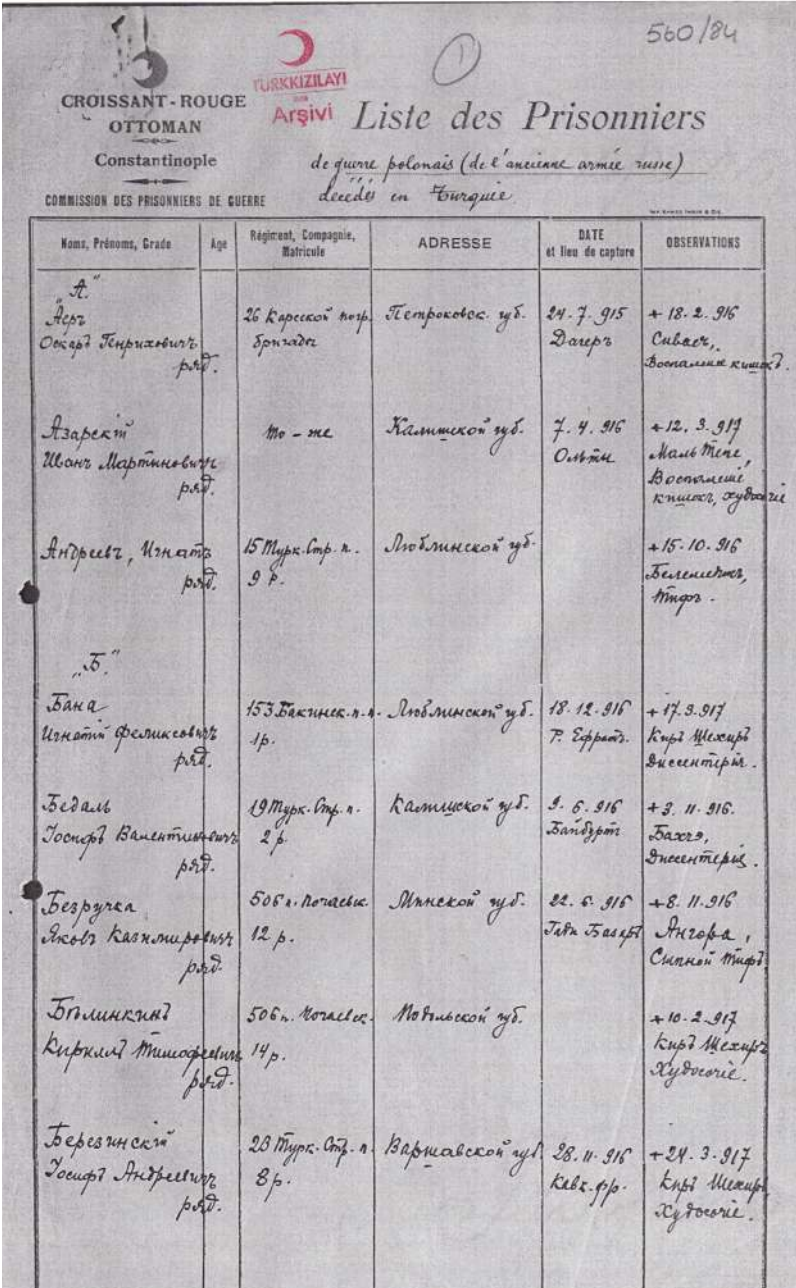 560/84
1
CROISSANT-ROUGE
OTTOMAN
Constantinople
COMMISSION DES PRISONNIERS DE GUERRE
TÜRKKIZILAYI
Arşivi
Liste des Prisonniers
de guerre polonais (de l'ancienne armée russe)
décédés en Turquie
Noms, Prénoms, Grade
Age
Régiment, Compagnie,
Matricule
ADRESSE
DATE
et lieu de capture
OBSERVATIONS
„А."
Аеръ
Оскаръ Генриховичъ
ряд.
26 Карсской погр.
бригады
Петроковск. губ.
24.7.915
Дагеръ
+ 18.2.916
Сивасъ,
Воспаленіе кишокъ.
Азарскій
Иванъ Мартиновичъ
ряд.
то-же
Калишской губ.
7.4.916
Ольты
+12.3.917
Маль Тепе,
Воспаленіе
кишокъ, худосочіе
Андреевъ, Игнатъ
ряд.
15 Турк. Стр. п.
9 р.
Люблинской губ.
+15.10.916
Белемедикъ,
Тифъ.
„Б."
Бана
Игнатій Феликсовичъ
ряд.
153 Бакинск. п.п.
1р.
Люблинской губ.
18.12.916
Р. Ефратъ.
+17.3.917
Киръ Шехиръ
Диссентерія.
Бедаль
Іосифъ Валентиновичъ
ряд.
19 Турк. Стр. п.
2 р.
Калишской губ.
9.6.916
Байбуртъ
+3.11.916.
Бахчэ,
Диссентерія.
Безручка
Яковъ Казимировичъ
ряд.
506 п. Почаевск.
12 р.
Минской губ.
22.6.916
Базаръ
+8.11.916
Ангора,
Сыпной Тифъ
Бѣлинкинъ
Кириллъ Тимофеевичъ
ряд.
506 п. Почаевск.
14 р.
Подольской губ.
+10.2.917
Киръ Шехиръ
Худосочіе.
Березинскій
Іосифъ Андреевичъ
ряд.
20 Турк. Стр. п.
8 р.
Варшавской губ.
28.11.916
Кавк. фр.
+24.3.917
Киръ Шехиръ
Худосочіе.